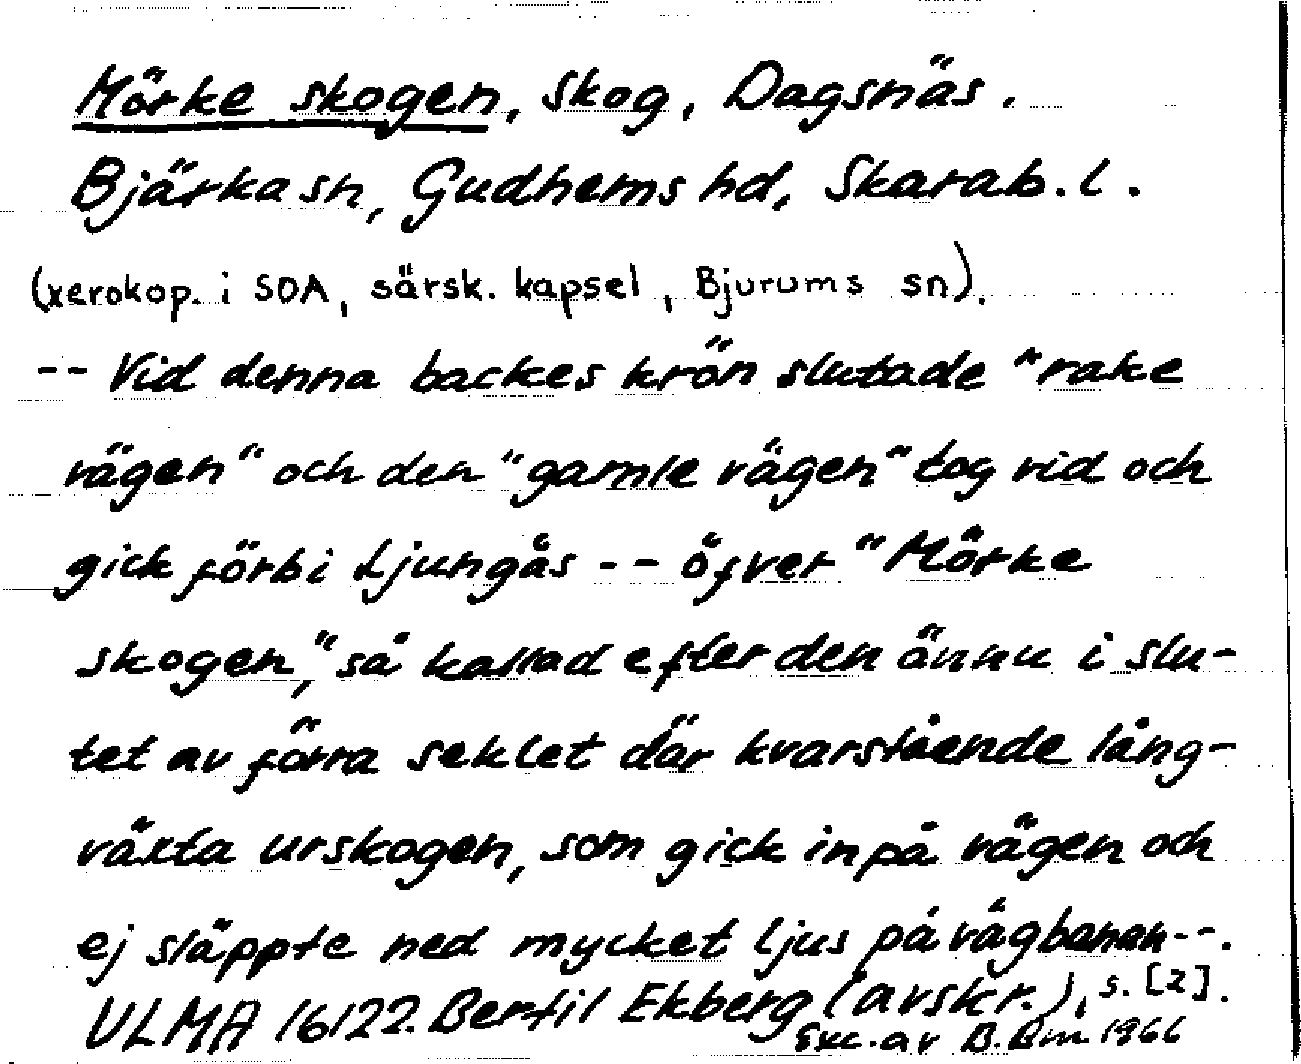 Mörke skogen, Skog, Dagsnäs.
Bjärka sn, Gudhems hd, Skarab. l.
(xerokop. i SOA, särsk. kapsel, Bjurums sn).
-- Vid denna backes krön slutade "rake
vägen" och den "gamle vägen" tog vid och
gick förbi Ljungås -- öfver "Mörke
skogen," så kallad efter den ännu i slu-
tet av förra seklet där kvarstående lång-
växta urskogen, som gick inpå vägen och
ej släppte ned mycket ljus på vägbanan--.
ULMA 16122. Bertil Ekberg (avskr.), s. [2].
Exc. av B. Bm. 1966